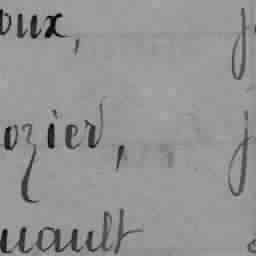 oux, j
ozier, j
uault